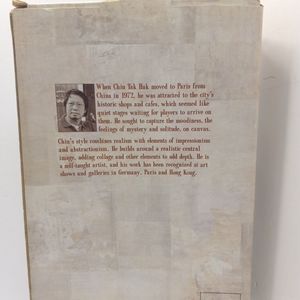 When Chiu Tak Hak moved to Paris from
China in 1972, he was attracted to the city's
historic shops and cafes, which seemed like
quiet stages waiting for players to arrive on
them. He sought to capture the moodiness, the
feelings of mystery and solitude, on canvas.
Chiu's style combines realism with elements of impressionism
and abstractionism. He builds around a realistic central
image, adding collage and other elements to add depth. He is
a self-taught artist, and his work has been recognized at art
shows and galleries in Germany, Paris and Hong Kong.